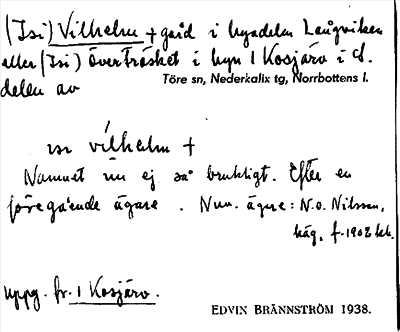 (Isi) Vilhelm + gård i byadelen Långviken
eller (Isi) Överträsket i byn 1 Kosjärv i d.
delen av
Töre sn, Nederkalix tg, Norrbottens l.
ɪsɪ vilhelm +
Namnet nu ej så brukligt. Efter en
föregående ägare. Nuv. ägare: N.O. Nilsson,
häg. f. 1902
uppg. fr. 1 Kosjärv.
EDVIN BRÄNNSTRÖM 1938.